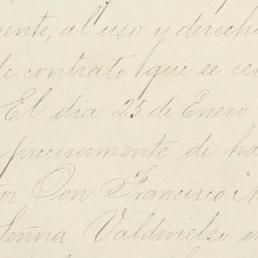 ente, al uso y derecho
de contrato que se ce
El dia 25 de Enero
precisamente de ha
or Don Francisco
Señora Valdivielso en